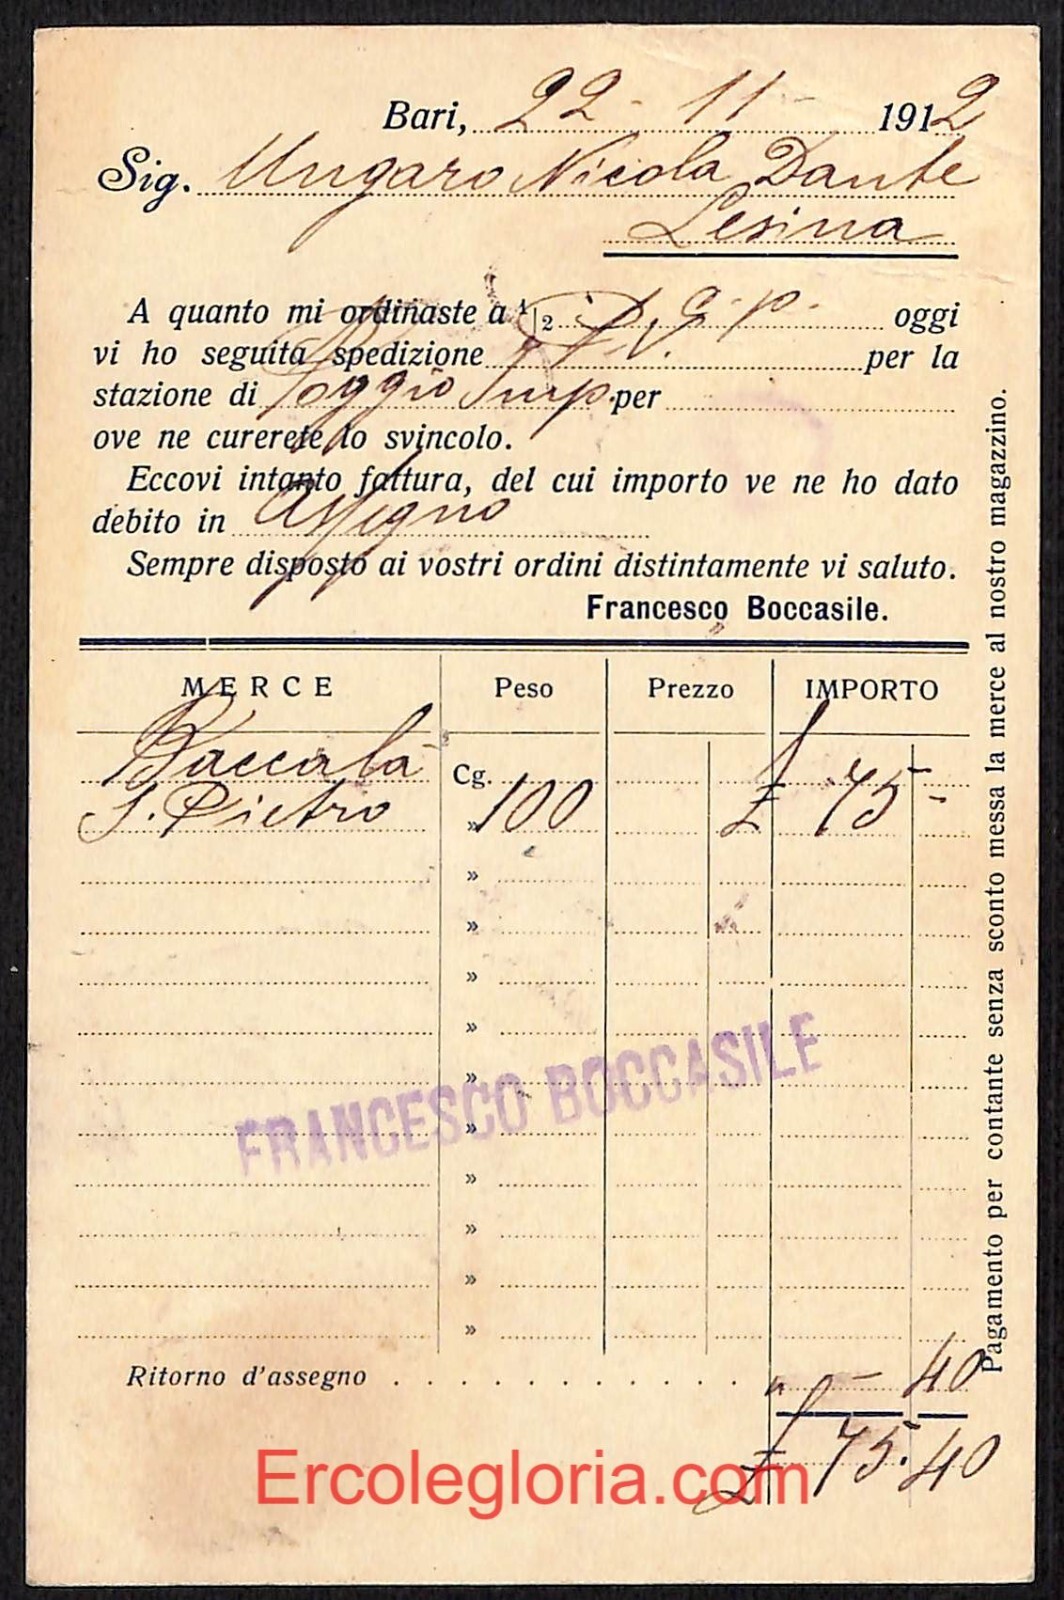 Bari, 22 - 11 - 1912
Sig. Ungaro Nicola Dante
Lesina
A quanto mi ordinaste a 1/2 oggi
vi ho seguita spedizione P. V. per la
stazione di Poggio Imp. per
ove ne curerete lo svincolo.
Eccovi intanto fattura, del cui importo ve ne ho dato
debito in Assegno
Sempre disposto ai vostri ordini distintamente vi saluto.
Francesco Boccasile.
MERCE Peso Prezzo IMPORTO
Baccalà Cg.
S. Pietro » 100 £ 75 -
»
»
»
»
»
»
»
»
»
»
FRANCESCO BOCCASILE
Ritorno d'assegno . . . . . . . . . . . . . » - 40
£ 75.40
Pagamento per contante senza sconto messa la merce al nostro magazzino.
Ercolegloria.com